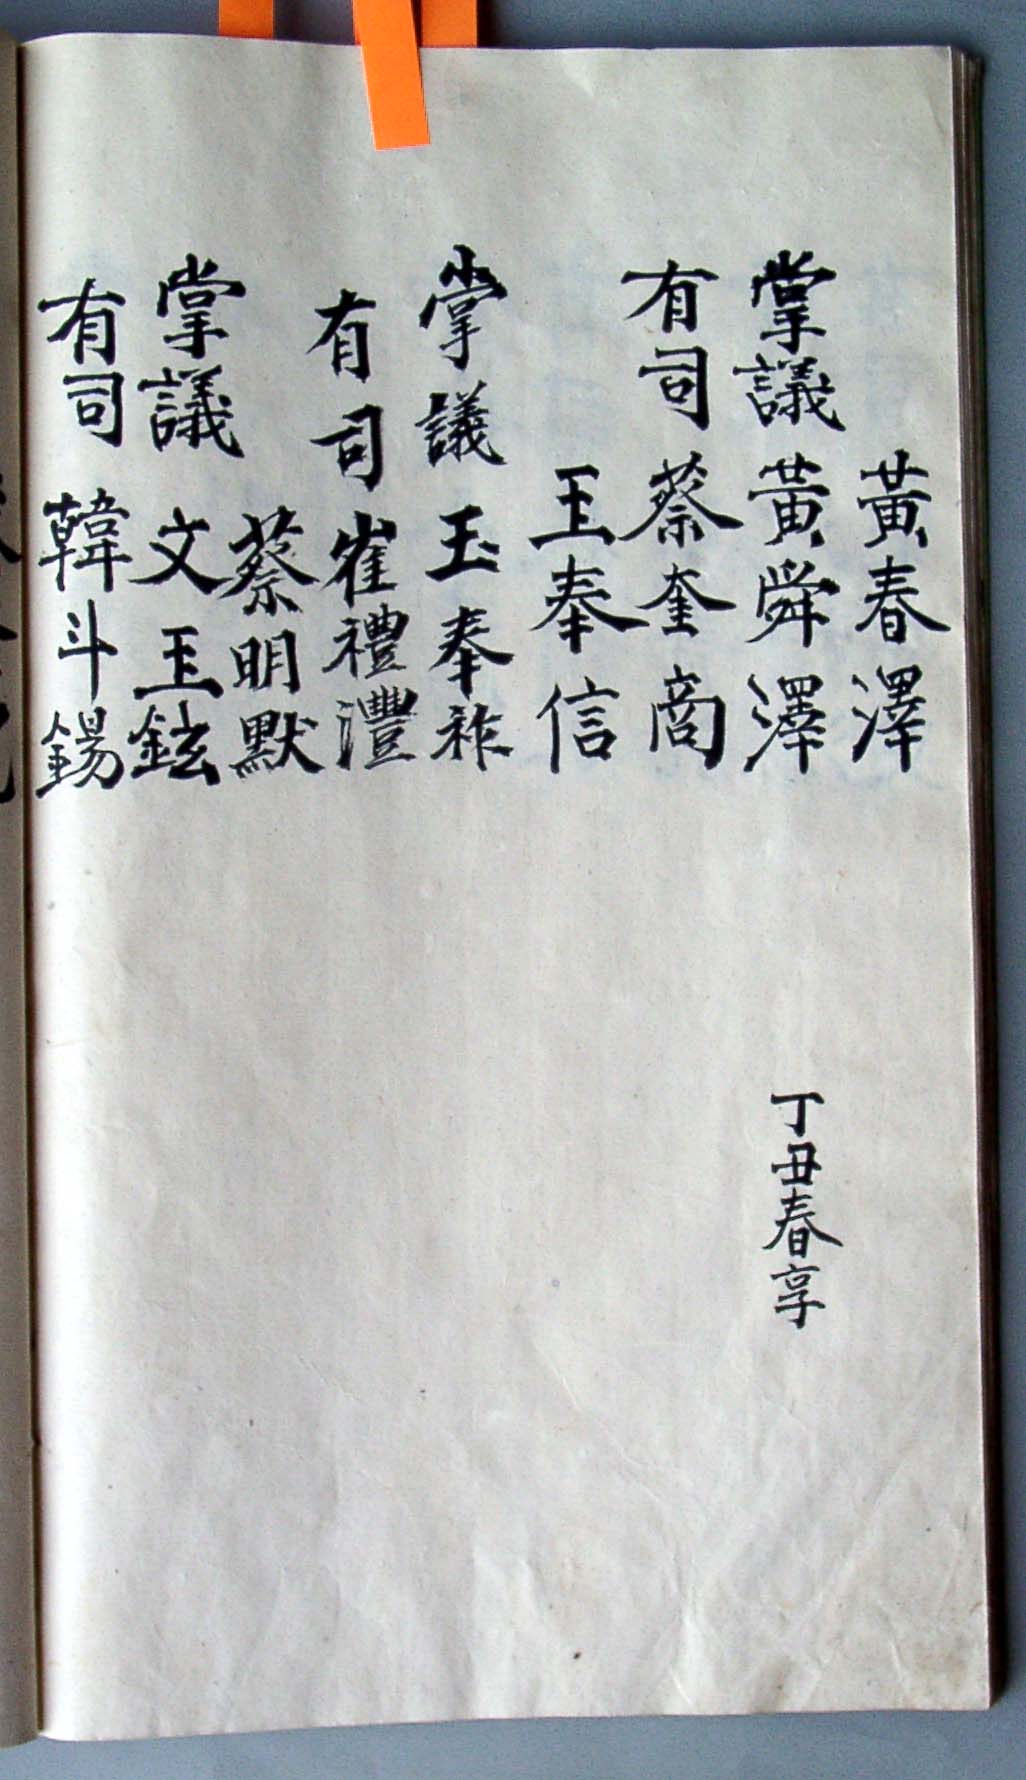 黃春澤
掌議 黃舜澤 丁丑春享
有司 蔡奎商
王奉信
掌議 玉奉祚
有司 崔禮灃
蔡明默
掌議 文王鉉
有司 韓斗錫